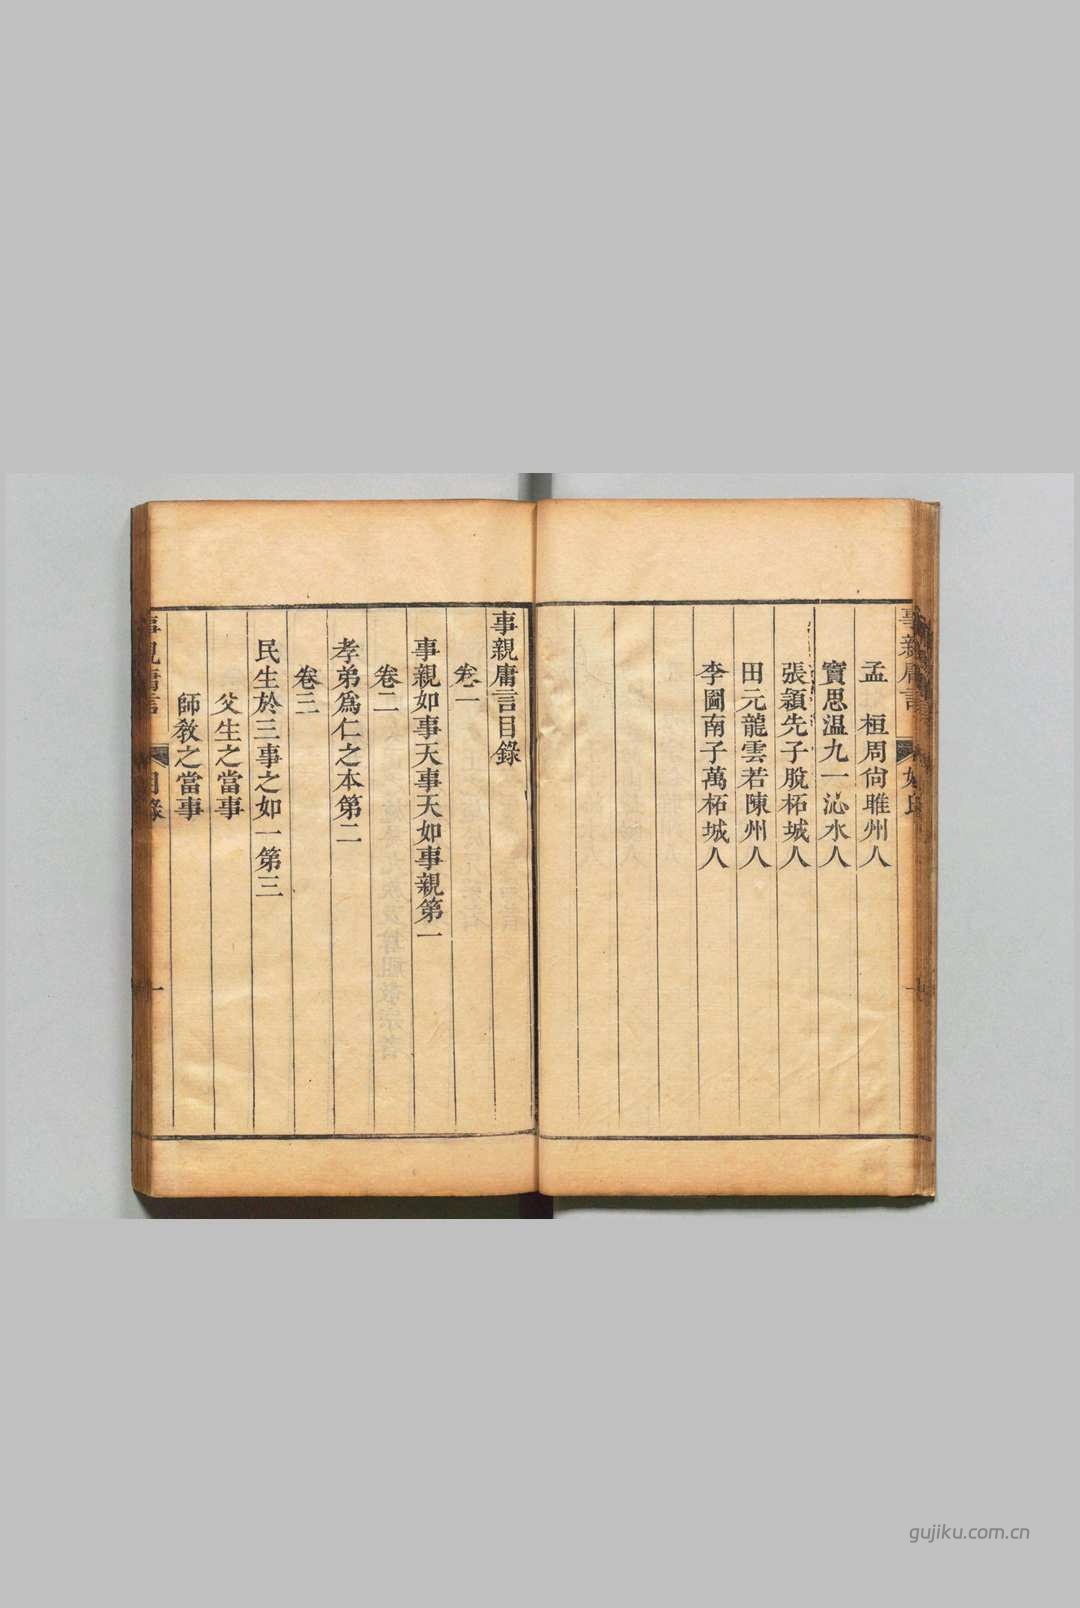 事親庸言
孟　桓周尙睢州人
竇思温九一沁水人
張顈先子脫柘城人
田元龍雲若陳州人
李圖南子萬柘城人
事親庸言目錄
卷一
事親如事天事天如事親第一
卷二
孝弟爲仁之本第二
卷三
民生於三事之如一第三
父生之當事
師敎之當事
事親庸言
目錄
一
gujiku.com.cn